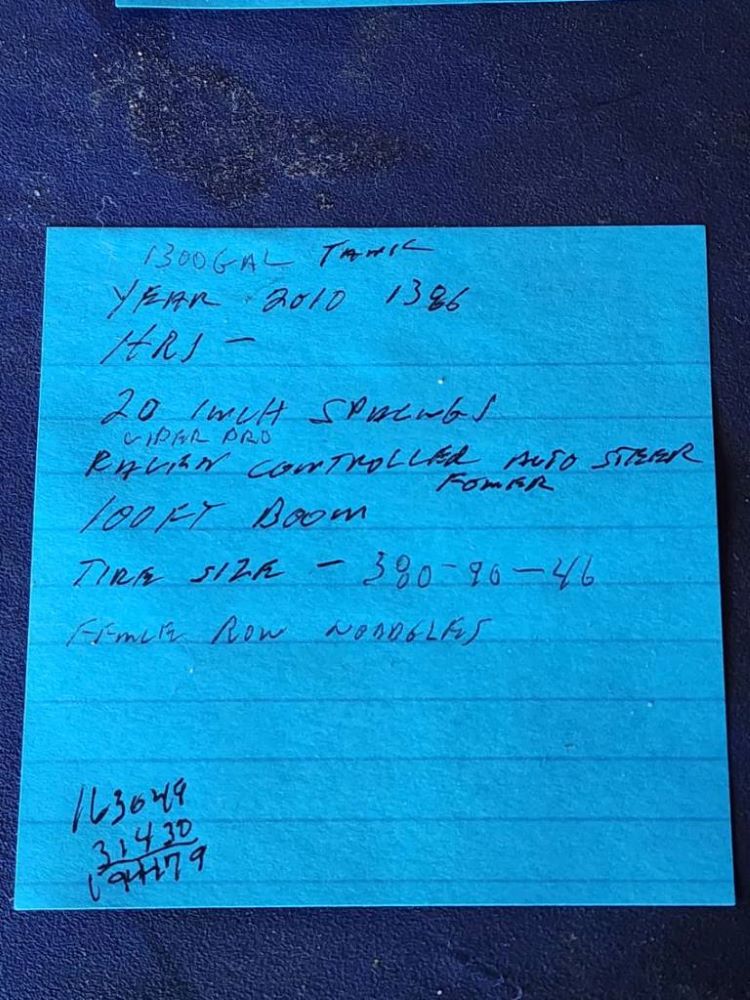 1300 GAL TANK
YEAR 2010 1386
HRS -
20 INCH SPACINGS
VIPER PRO
RAVEN CONTROLLER AUTO STEER
100 FT BOOM
TIRE SIZE - 380-90-46
ROW
163049
31430